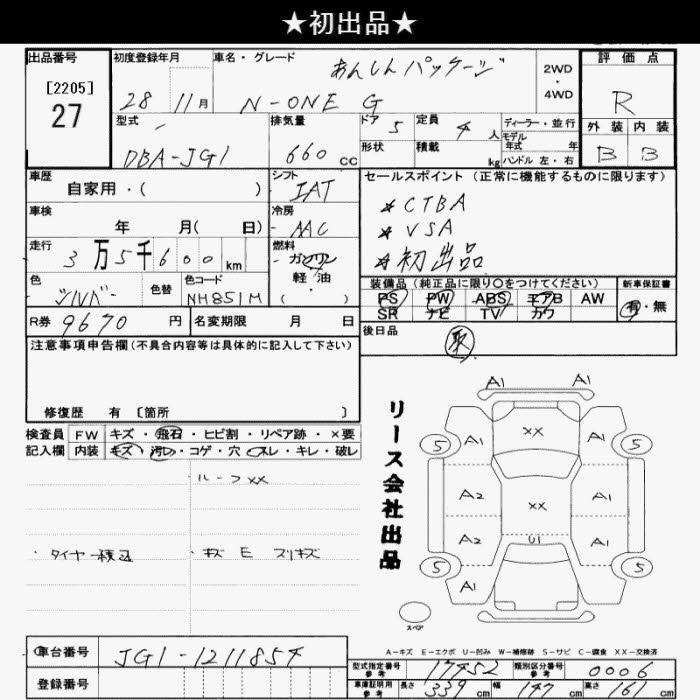 ★初出品★
出品番号
[2205]
27
初度登録年月
28 11月
車名・グレード
あんしんパッケージ
N-ONE G
2WD
・
4WD
評価点
R
外装 内装
B B
型式
DBA-JG1
排気量
660 cc
ドア 5
形状
定員 4 人
積載 kg
ディーラー・並行
モデル年式 年
ハンドル 左・右
車歴
自家用・( )
シフト
IAT
セールスポイント(正常に機能するものに限ります)
★CTBA
★VSA
★初出品
車検
年 月( 日)
冷房
AAC
走行
3万5千600km
燃料
ガソリン
軽油
・
( )
色
シルバー
色替
色コード
NH851M
装備品(純正品に限り○をつけてください)
新車保証書
PS PW ABS エアB AW
SR ナビ TV カワ
有・無
R券 9670 円
名変期限 月 日
後日品
取
注意事項申告欄(不具合内容等は具体的に記入して下さい)
修復歴 有 〔箇所 〕
検査員
記入欄
FW キズ・飛石・ヒビ割・リペア跡・×要
内装 キズ・汚レ・コゲ・穴・スレ・キレ・破レ
・ルーフXX
・タイヤ一積込
・キズ E スリキズ
リース会社出品
A1 A1
A1 XX A1
5 5
A2 XX A1
A2 U1 A1
5 5
A1
スペア
A-キズ E-エクボ U-凹み W-補修跡 S-サビ C-腐食 XX-交換済
車台番号
JG1-1211854
登録番号
型式指定番号
参考
17452
類別区分番号
参考
0006
車庫証明用
参考
長さ 339 cm 幅 147 cm 高さ 161 cm